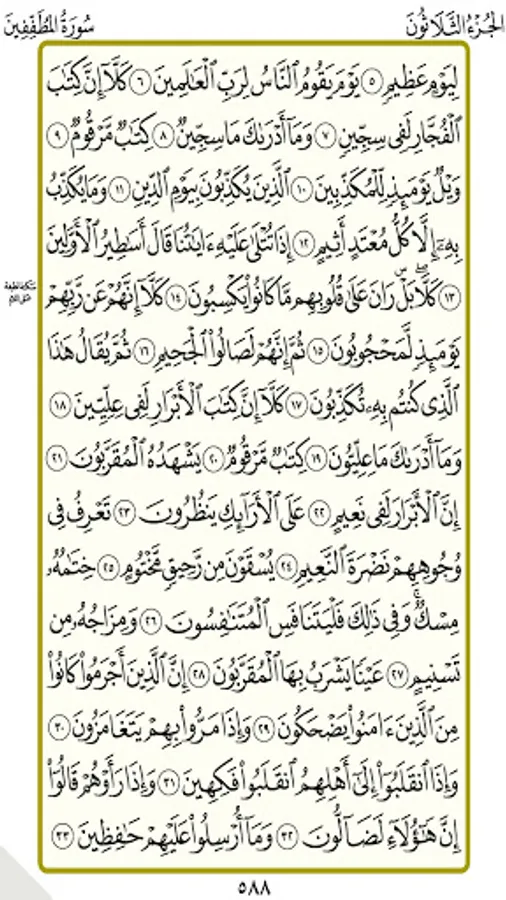 سُورَةُ المُطَفِّفِينَ
الجُزْءُ الثَّلَاثُونَ
لِيَوۡمٍ عَظِيمٖ ٥ يَوۡمَ يَقُومُ ٱلنَّاسُ لِرَبِّ ٱلۡعَٰلَمِينَ ٦ كَلَّآ إِنَّ كِتَٰبَ
ٱلۡفُجَّارِ لَفِي سِجِّينٖ ٧ وَمَآ أَدۡرَىٰكَ مَا سِجِّينٞ ٨ كِتَٰبٞ مَّرۡقُومٞ ٩
وَيۡلٞ يَوۡمَئِذٖ لِّلۡمُكَذِّبِينَ ١٠ ٱلَّذِينَ يُكَذِّبُونَ بِيَوۡمِ ٱلدِّينِ ١١ وَمَا يُكَذِّبُ
بِهِۦٓ إِلَّا كُلُّ مُعۡتَدٍ أَثِيمٍ ١٢ إِذَا تُتۡلَىٰ عَلَيۡهِ ءَايَٰتُنَا قَالَ أَسَٰطِيرُ ٱلۡأَوَّلِينَ
١٣ كَلَّاۖ بَلۡۜ رَانَ عَلَىٰ قُلُوبِهِم مَّا كَانُواْ يَكۡسِبُونَ ١٤ كَلَّآ إِنَّهُمۡ عَن رَّبِّهِمۡ
يَوۡمَئِذٖ لَّمَحۡجُوبُونَ ١٥ ثُمَّ إِنَّهُمۡ لَصَالُواْ ٱلۡجَحِيمِ ١٦ ثُمَّ يُقَالُ هَٰذَا
ٱلَّذِي كُنتُم بِهِۦ تُكَذِّبُونَ ١٧ كَلَّآ إِنَّ كِتَٰبَ ٱلۡأَبۡرَارِ لَفِي عِلِّيِّينَ ١٨
وَمَآ أَدۡرَىٰكَ مَا عِلِّيُّونَ ١٩ كِتَٰبٞ مَّرۡقُومٞ ٢٠ يَشۡهَدُهُ ٱلۡمُقَرَّبُونَ ٢١
إِنَّ ٱلۡأَبۡرَارَ لَفِي نَعِيمٍ ٢٢ عَلَى ٱلۡأَرَآئِكِ يَنظُرُونَ ٢٣ تَعۡرِفُ فِي
وُجُوهِهِمۡ نَضۡرَةَ ٱلنَّعِيمِ ٢٤ يُسۡقَوۡنَ مِن رَّحِيقٖ مَّخۡتُومٍ ٢٥ خِتَٰمُهُۥ
مِسۡكٞۚ وَفِي ذَٰلِكَ فَلۡيَتَنَافَسِ ٱلۡمُتَنَٰفِسُونَ ٢٦ وَمِزَاجُهُۥ مِن
تَسۡنِيمٍ ٢٧ عَيۡنٗا يَشۡرَبُ بِهَا ٱلۡمُقَرَّبُونَ ٢٨ إِنَّ ٱلَّذِينَ أَجۡرَمُواْ كَانُواْ
مِنَ ٱلَّذِينَ ءَامَنُواْ يَضۡحَكُونَ ٢٩ وَإِذَا مَرُّواْ بِهِمۡ يَتَغَامَزُونَ ٣٠
وَإِذَا ٱنقَلَبُوٓاْ إِلَىٰٓ أَهۡلِهِمُ ٱنقَلَبُواْ فَكِهِينَ ٣١ وَإِذَا رَأَوۡهُمۡ قَالُوٓاْ
إِنَّ هَٰٓؤُلَآءِ لَضَآلُّونَ ٣٢ وَمَآ أُرۡسِلُواْ عَلَيۡهِمۡ حَٰفِظِينَ ٣٣
٥٨٨